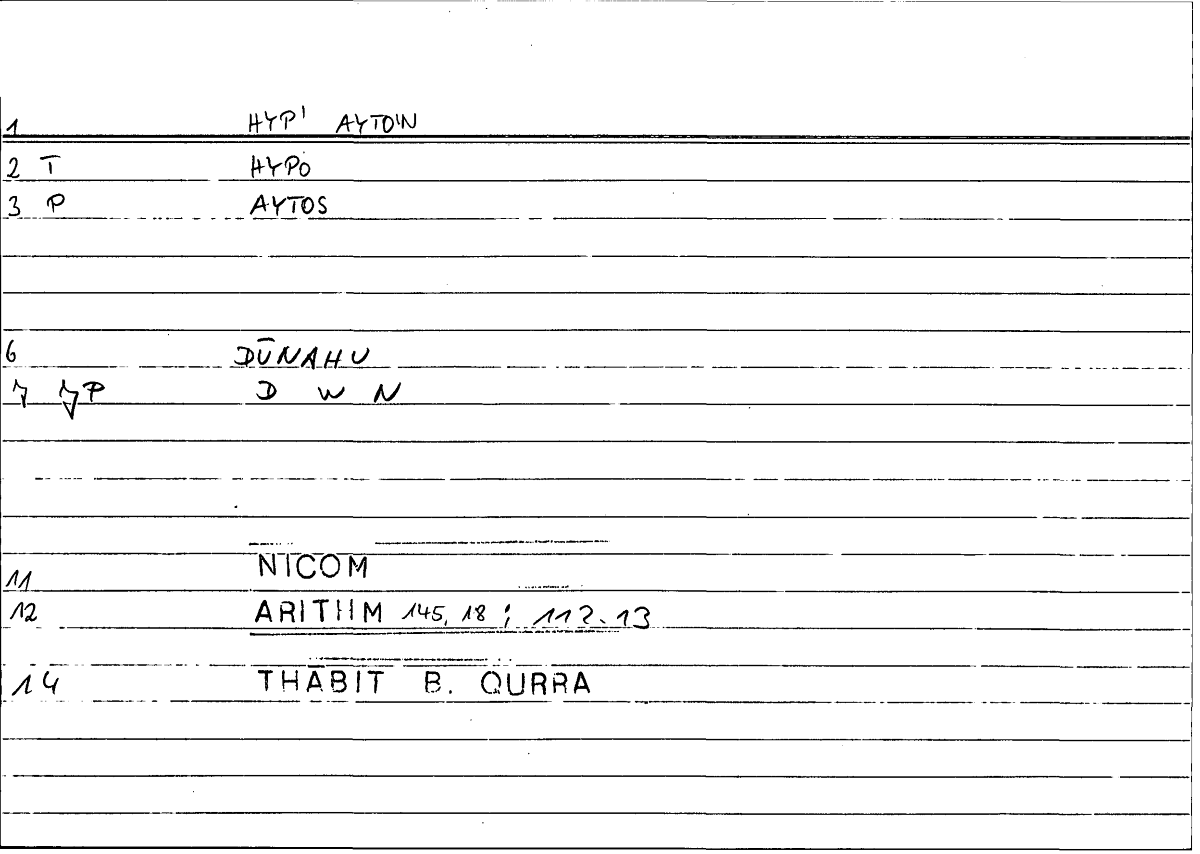 1 HYP' AYTO'N
2 T HYPO
3 P AYTOS
6 DŪNAHU
7 P D W N
11 NICOM
12 ARITHM 145, 18 ; 112.13
14 THĀBIT B. QURRA